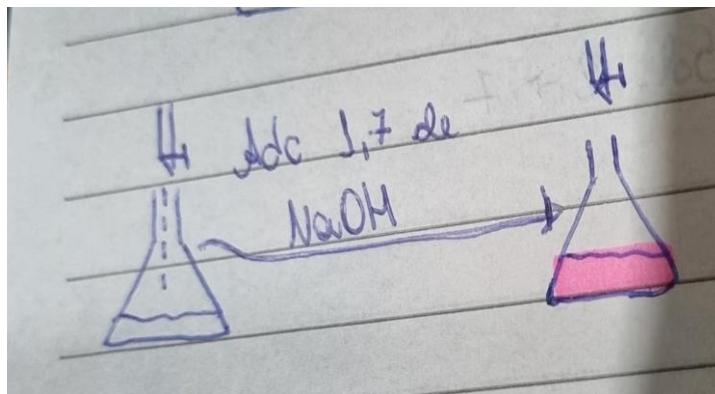 Adc 1,7 de
NaOH